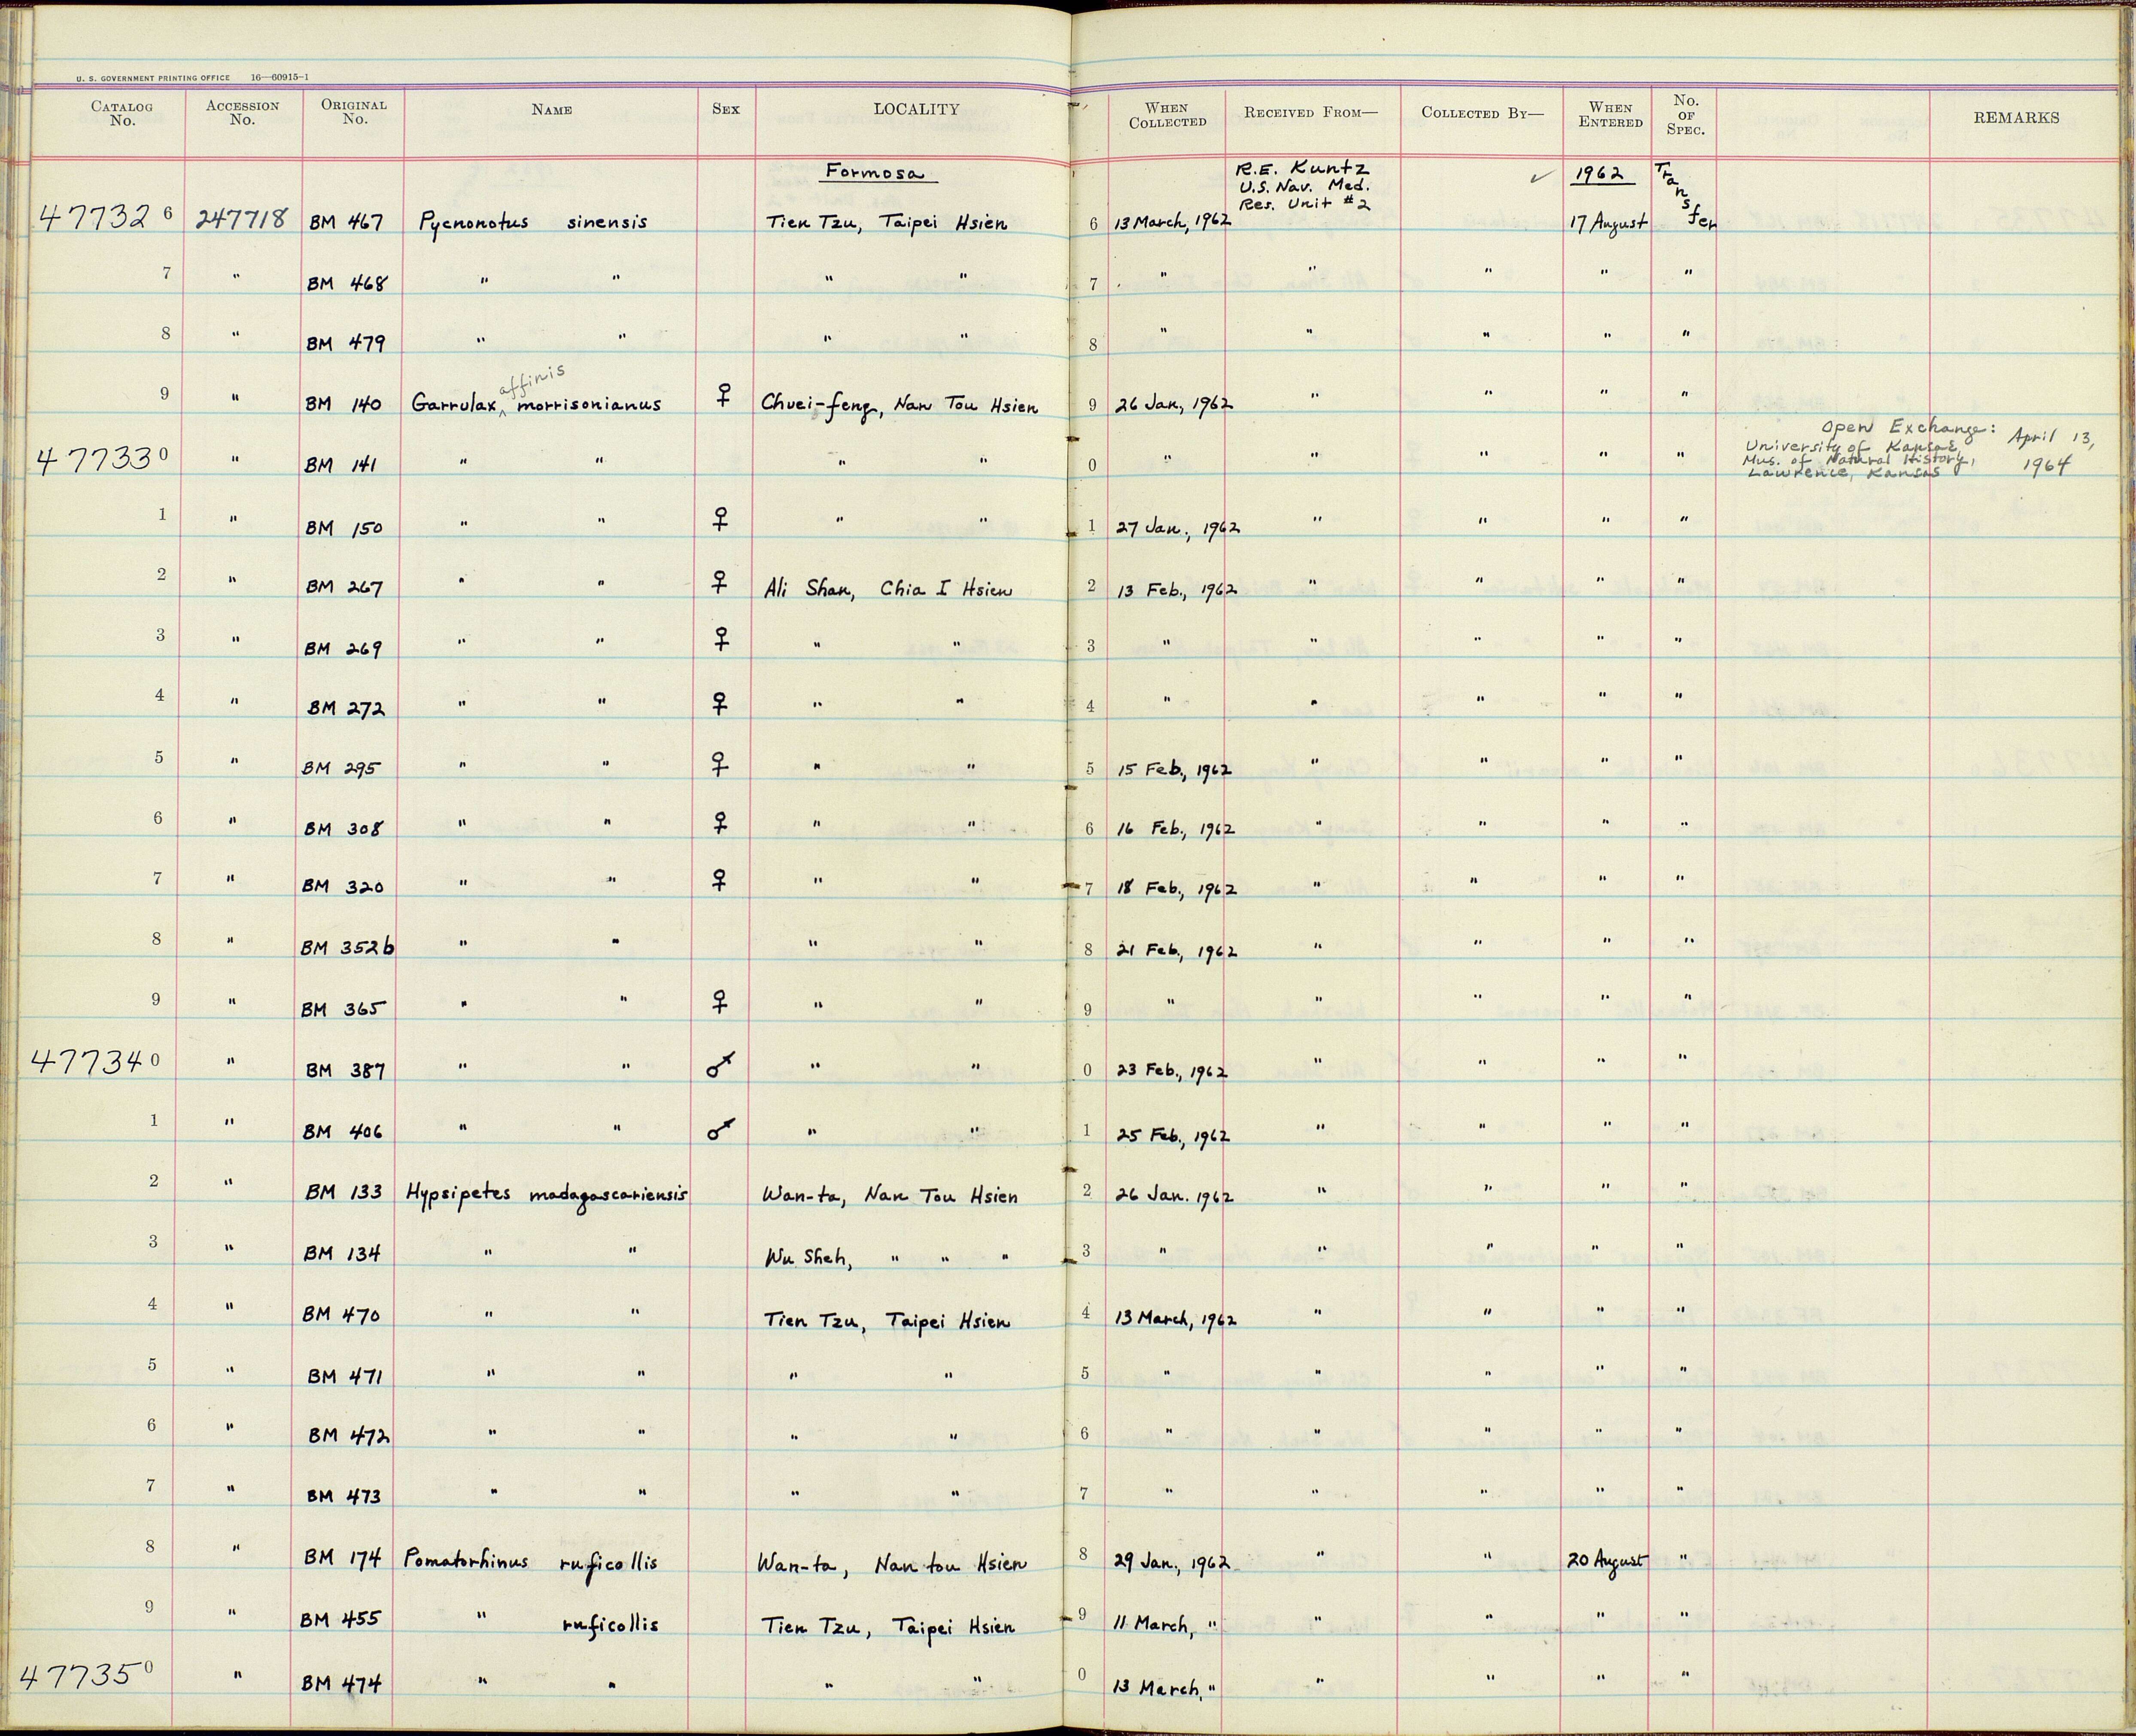 U. S. GOVERNMENT PRINTING OFFICE 16—60915-1
CATALOG No. ACCESSION No. ORIGINAL No. NAME SEX LOCALITY WHEN COLLECTED RECEIVED FROM— COLLECTED BY— WHEN ENTERED No. OF SPEC. REMARKS
Formosa R.E. Kuntz U.S. Nav. Med. Res. Unit #2 ✓ 1962 Transfer
477326 247718 BM 467 Pycnonotus sinensis Tien Tzu, Taipei Hsien 6 13 March, 1962 17 August
7 " BM 468 " " " " 7 " " " " "
8 " BM 479 " " " " 8 " " " " "
9 " BM 140 Garrulax ^affinis morrisonianus ♀ Chuei-feng, Nan Tou Hsien 9 26 Jan, 1962 " " " "
477330 " BM 141 " " " " 0 " " " " " Open Exchange: University of Kansas, Mus. of Natural History, Lawrence, Kansas April 13, 1964
1 " BM 150 " " ♀ " " 1 27 Jan., 1962 " " " "
2 " BM 267 " " ♀ Ali Shan, Chia I Hsien 2 13 Feb., 1962 " " " "
3 " BM 269 " " ♀ " " 3 " " " " "
4 " BM 272 " " ♀ " " 4 " " " " "
5 " BM 295 " " ♀ " " 5 15 Feb., 1962 " " " "
6 " BM 308 " " ♀ " " 6 16 Feb., 1962 " " " "
7 " BM 320 " " ♀ " " 7 18 Feb., 1962 " " " "
8 " BM 352b " " " " 8 21 Feb., 1962 " " " "
9 " BM 365 " " ♀ " " 9 " " " " "
477340 " BM 387 " " ♂ " " 0 23 Feb., 1962 " " " "
1 " BM 406 " " ♂ " " 1 25 Feb., 1962 " " " "
2 " BM 133 Hypsipetes madagascariensis Wan-ta, Nan Tou Hsien 2 26 Jan. 1962 " " " "
3 " BM 134 " " Wu Sheh, " " " 3 " " " " "
4 " BM 470 " " Tien Tzu, Taipei Hsien 4 13 March, 1962 " " " "
5 " BM 471 " " " " 5 " " " " "
6 " BM 472 " " " " 6 " " " " "
7 " BM 473 " " " " 7 " " " " "
8 " BM 174 Pomatorhinus ruficollis Wan-ta, Nan tou Hsien 8 29 Jan., 1962 " " 20 August "
9 " BM 455 " ruficollis Tien Tzu, Taipei Hsien 9 11 March, " " " " "
477350 " BM 474 " " " " 0 13 March, " " " " "